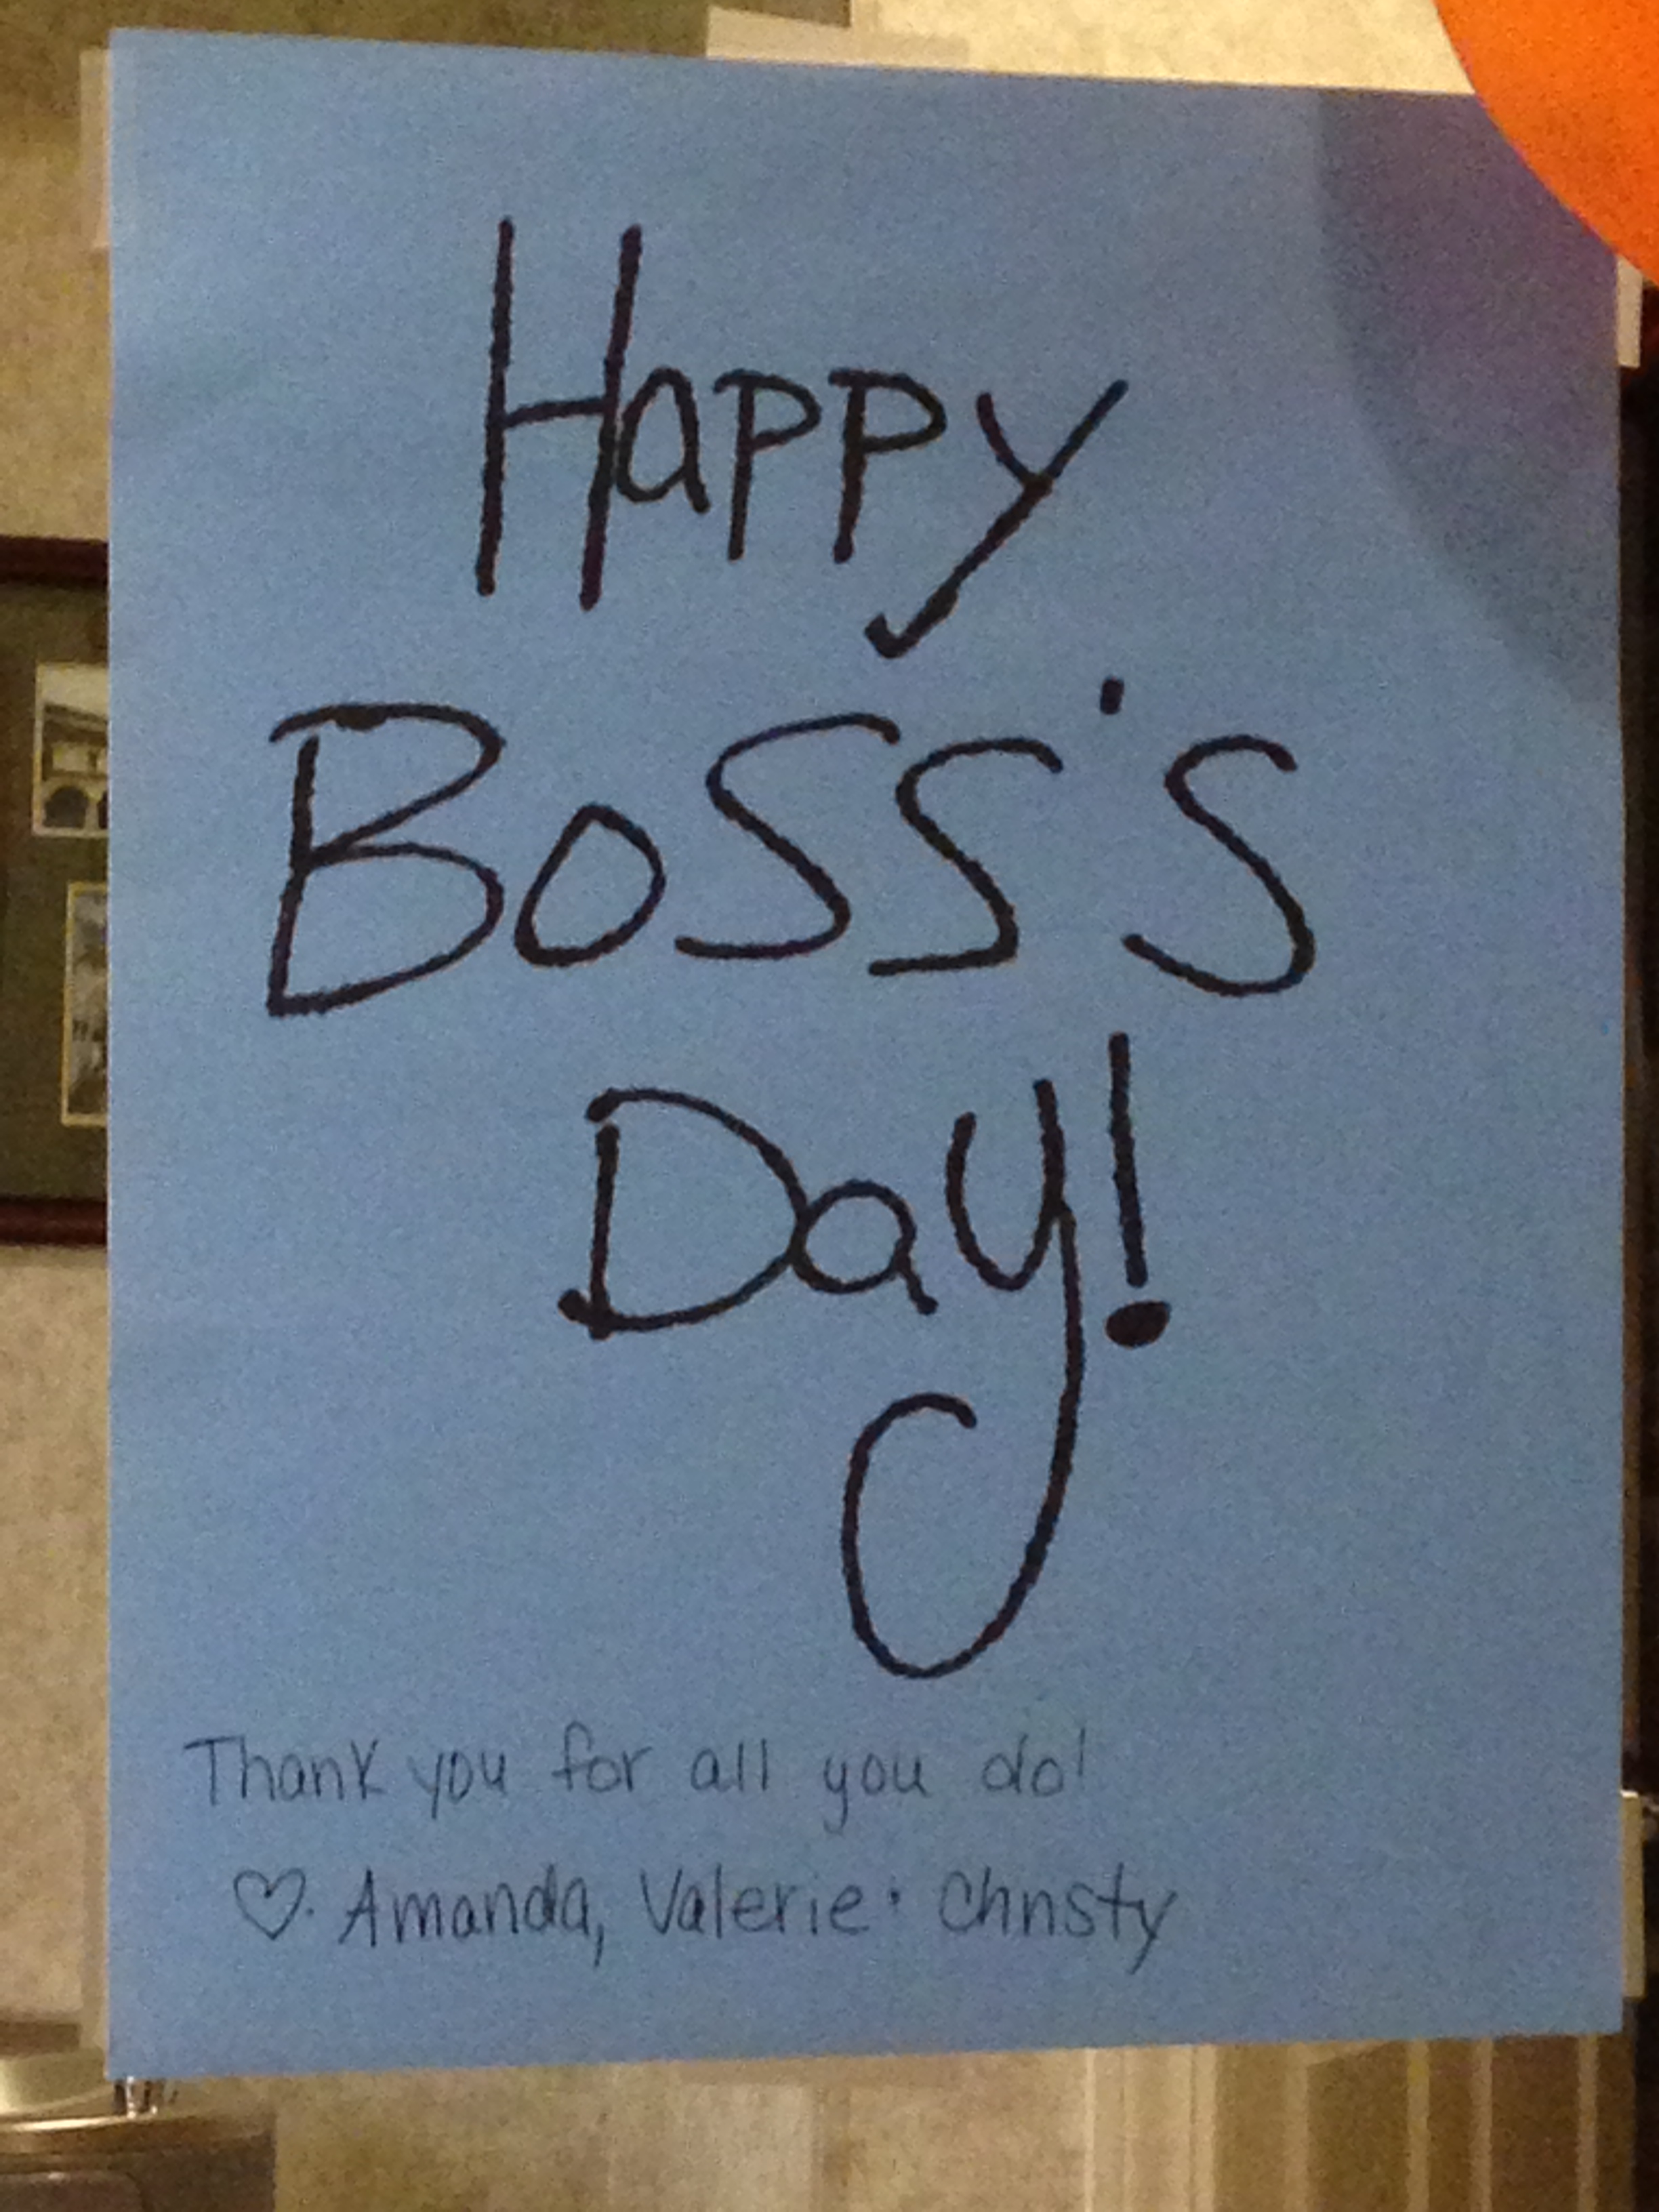 Happy
Boss's
Day!
Thank you for all you do!
♡ Amanda, Valerie + Christy